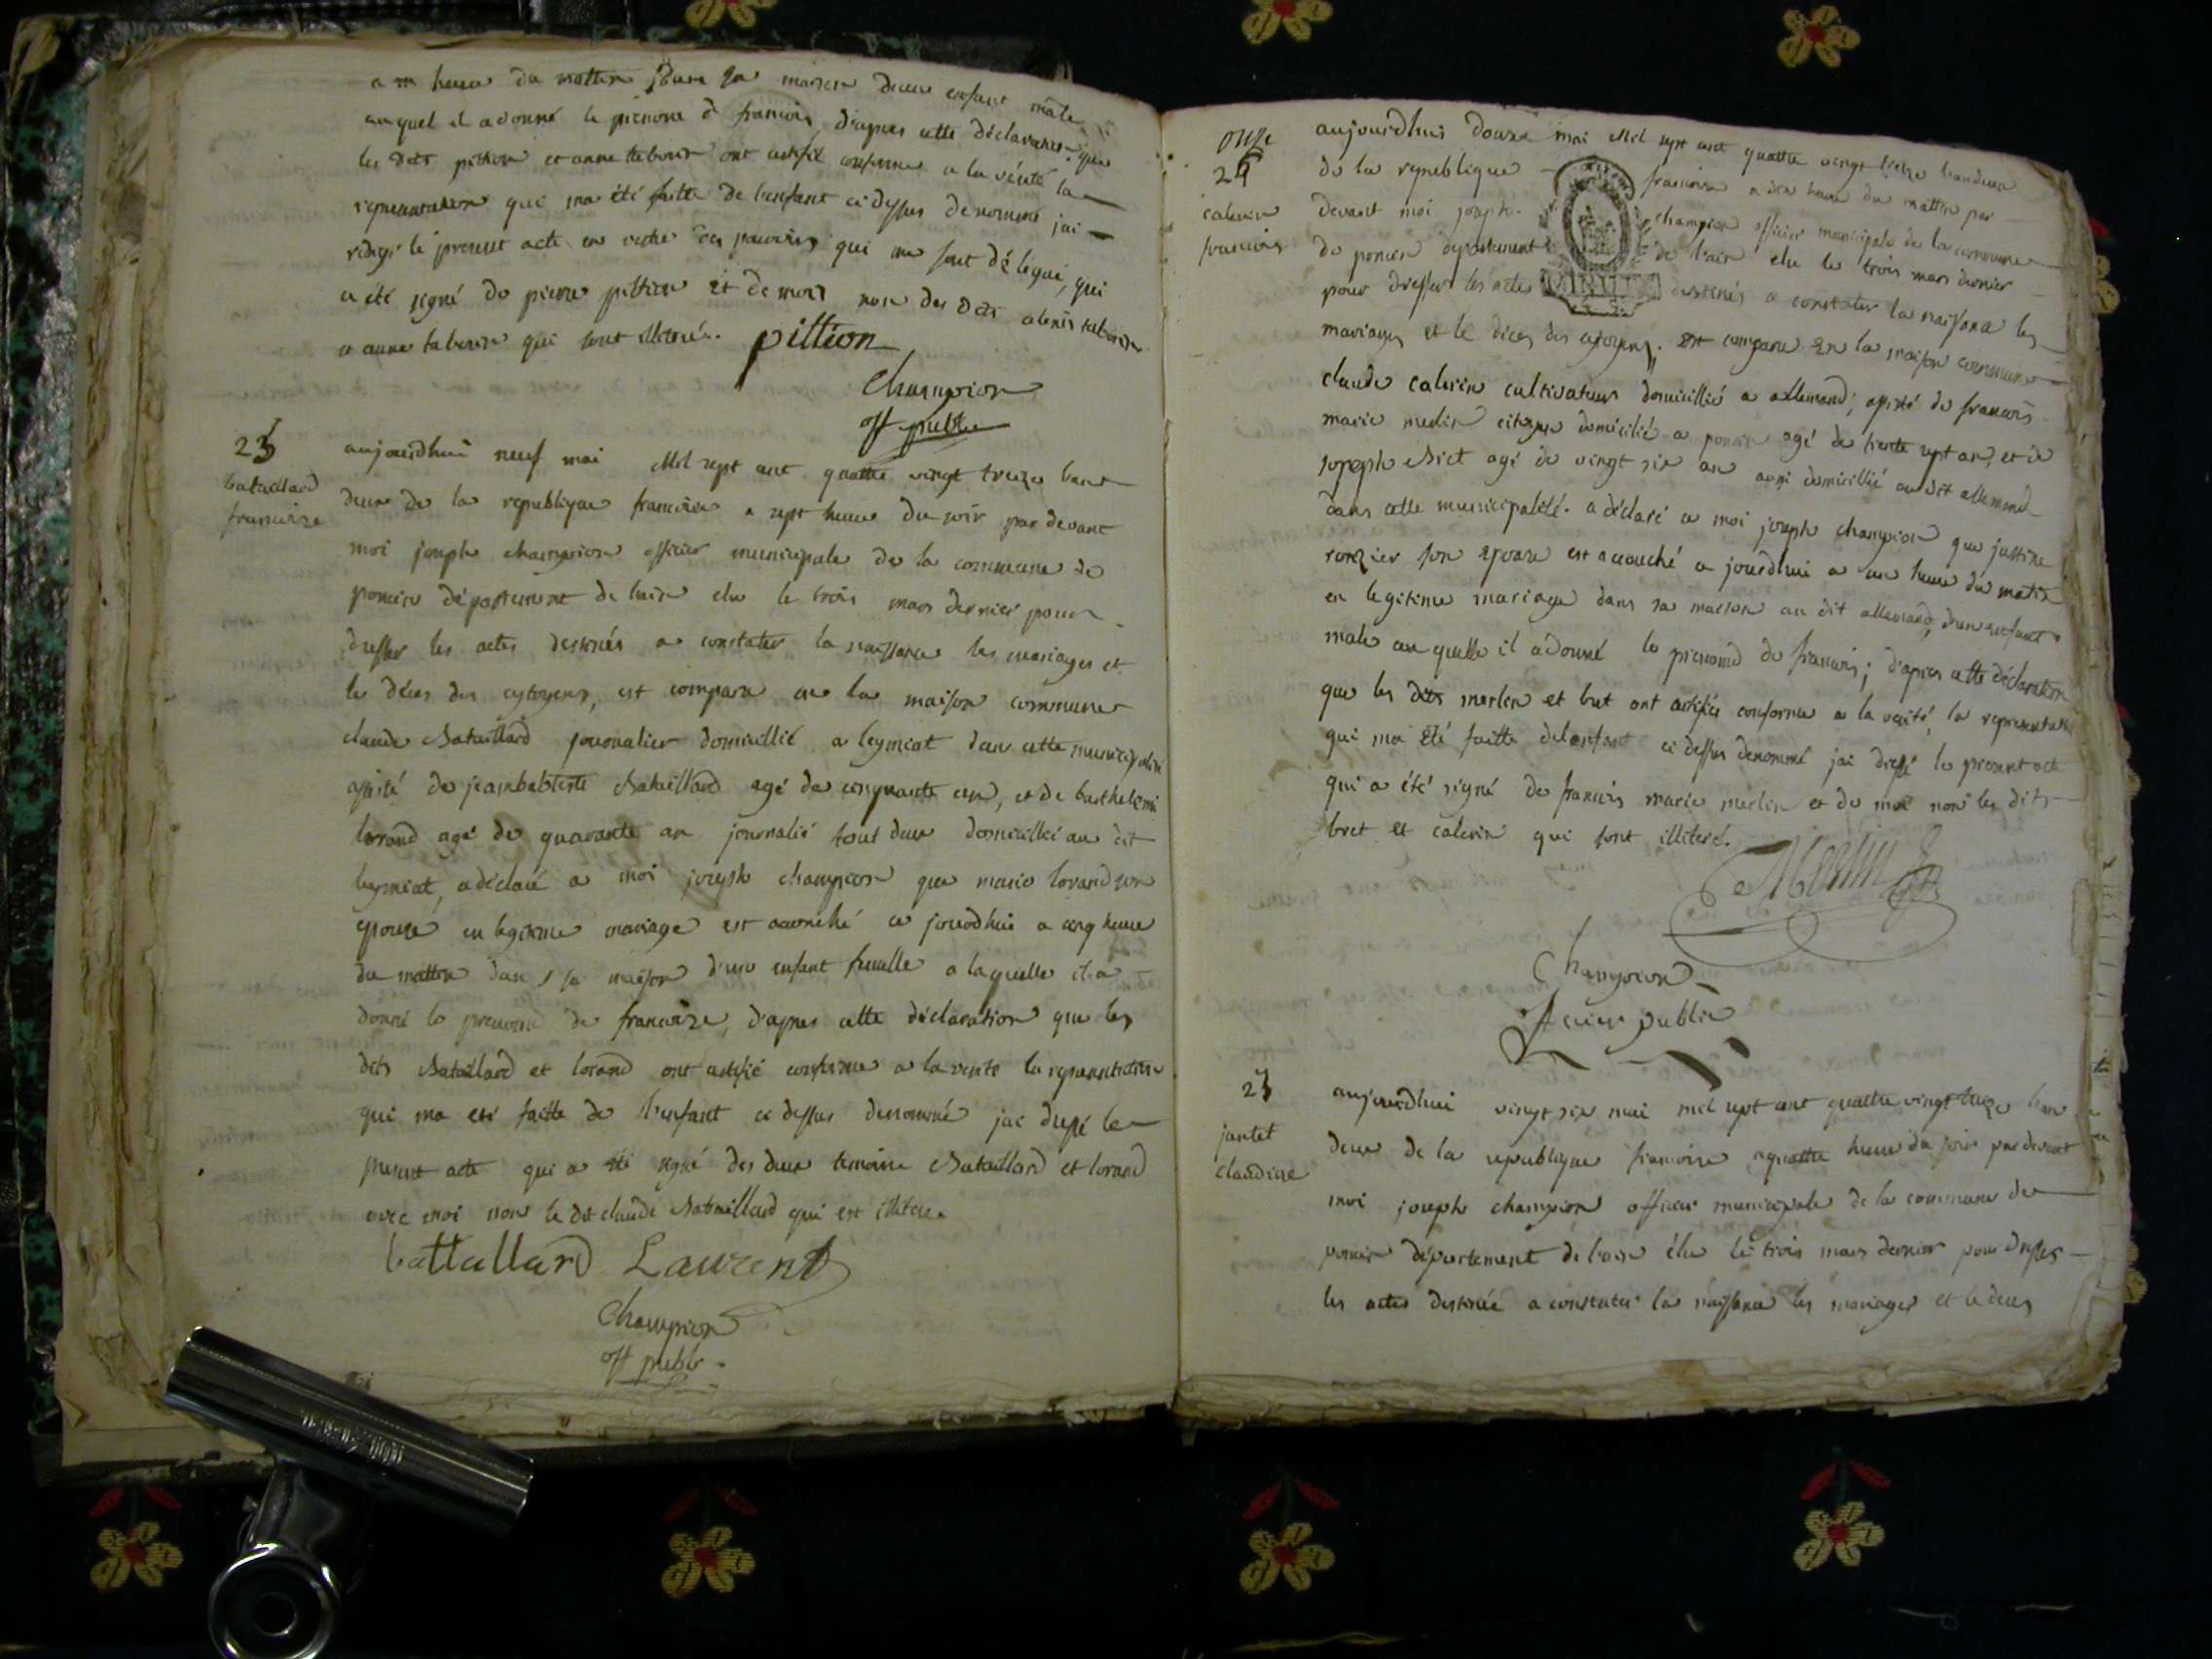 a un heure du mattin dans sa maison d'un enfant mâle
auquel il a donné le prenom de francois, d'apres cette déclaration que
les dits pittion et anne tabouin ont certifié conforme a la vérité la
representation qui ma été faitte de l'enfant ci dessus denommé jai
rédigé le present acte en vertu des pouvoirs qui me sont délégué, qui
a été signé de pierre pittion et de moi non des dits
et anne tabouin qui sont illiteré. pittion
Champion
off public
25
bataillard
francoise
aujourdhui neuf mai Mil sept cent quattre vingt treize lant
deux de la republique francoise a sept heure du soir par devant
moi joseph champion officier municipale de la commune de
poncin département de lain elu le trois mars dernier pour
dresser les actes destinés a constater la naissance les mariages et
le déces des cytoyens, est comparu en la maison commune
claude Bataillard journalier domicillié a leymiat dans cette municipalité
assisté de jeanbabtiste Bataillard agé de cinquante ans, et de barthelemi
lorand agé de quarante an journalié tout deux domicillié au dit
leymiat, a déclaré a moi joseph champion que marie lorand son
epouse en legitime mariage est accouché ce jourdhui a cinq heure
du mattin dans sa maison d'un enfant femelle a laquelle il a
donné le prenom de francoise, d'apres cette déclaration que les
dits Bataillard et lorand ont certifié conforme a la verité la representation
qui ma été faitte de l'enfant ci dessus denommé jai dressé le
present acte qui a été signé des deux temoins Bataillard et lorand
avec moi non le dit claude Bataillard qui est illiteré.
battallard Laurent
Champion
off public
onze
26
calerin
francois
aujourdhui douze mai Mil sept cent quattre vingt treize lan deux
de la republique francoise a dix heure du mattin par
devant moi joseph champion officier municipale de la commune
de poncin département de l'ain elu le trois mars dernier
pour dresser les actes destinés a constater la naissance les
mariages et le déces des cytoyens, est comparu en la maison commune
claude calerin cultivateur domicillié a allemand, assisté de francois
marie merlin citoyen domicilié a poncin agé de trente sept ans, et de
joseph Bret agé de vingt six an aussi domicillié au dit allemand
dans cette municipalité. a déclaré a moi joseph champion que justine
ronzier son epouse est accouché a jourdhui a un heure du matin
en legitime mariage dans sa maison au dit allemand, d'un enfant
male au quelle il a donné le prenomd de francois; d'apres cette déclaration
que les dits merlin et bret ont certifié conforme a la verité, la representation
qui ma été faitte de l'enfant ci dessus denommé jai dressé le present acte
qui a été signé de francois marie merlin et de moi non les dits
bret et calerin qui sont illiteré.
Merlin
Champion
officier public
27
jantet
claudine
aujourdhui vingt six mai mil sept cent quattre vingt treize lan
deux de la republique francoise a quattre heure du soir par devant
moi joseph champion officier municipale de la commune de
poncin département de l'ain élu le trois mars dernier pour dresser
les actes destinée a constater la naissance les mariages et le deces